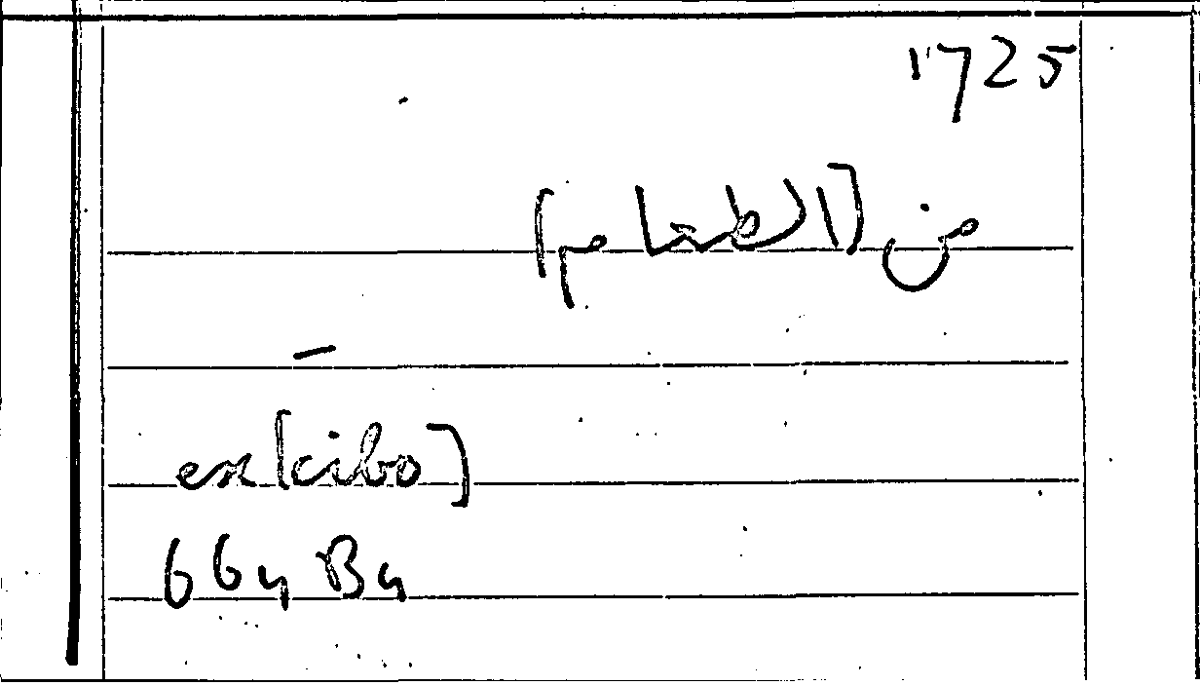 1725
من [الطعام]
ex [cibo]
664 B4